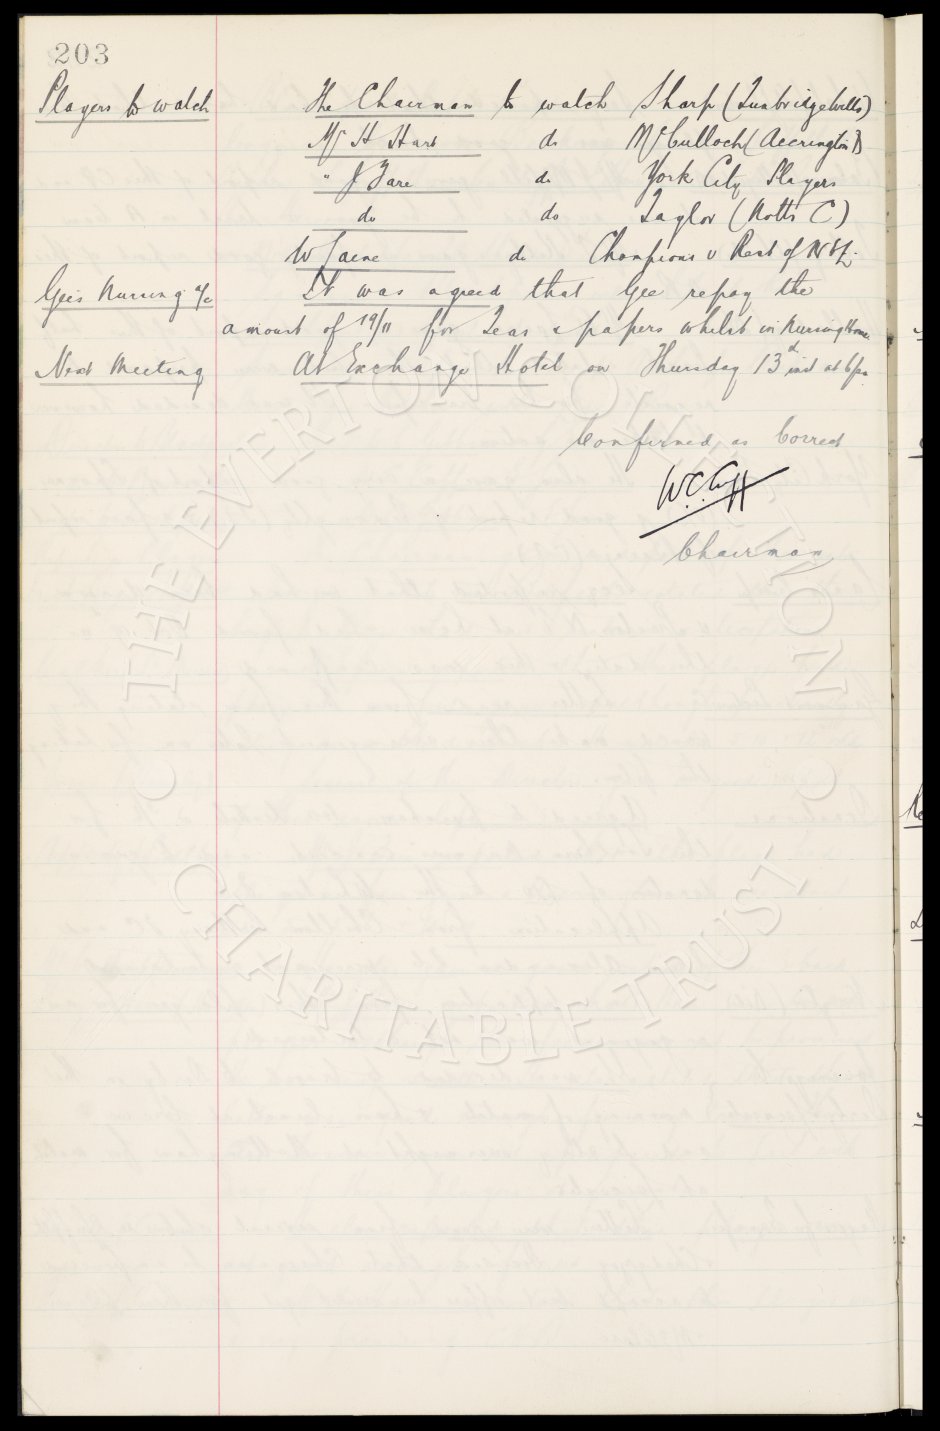 203
Players to watch The Chairman to watch Sharp (Tunbridge Wells)
Mr H Hart do McCulloch (Accrington)
" J Fare do York City Players
do do Taylor (Notts C)
W do Champions v Rest of
Gee's Nursing a/c It was agreed that Gee repay the
amount of 19/11 for Teas & papers whilst in Nursing Home
Next Meeting At Exchange Hotel on Thursday 13th inst at 6pm
Confirmed as Correct
W.C. Cuff
Chairman
THE EVERTON COLLECTION
CHARITABLE TRUST